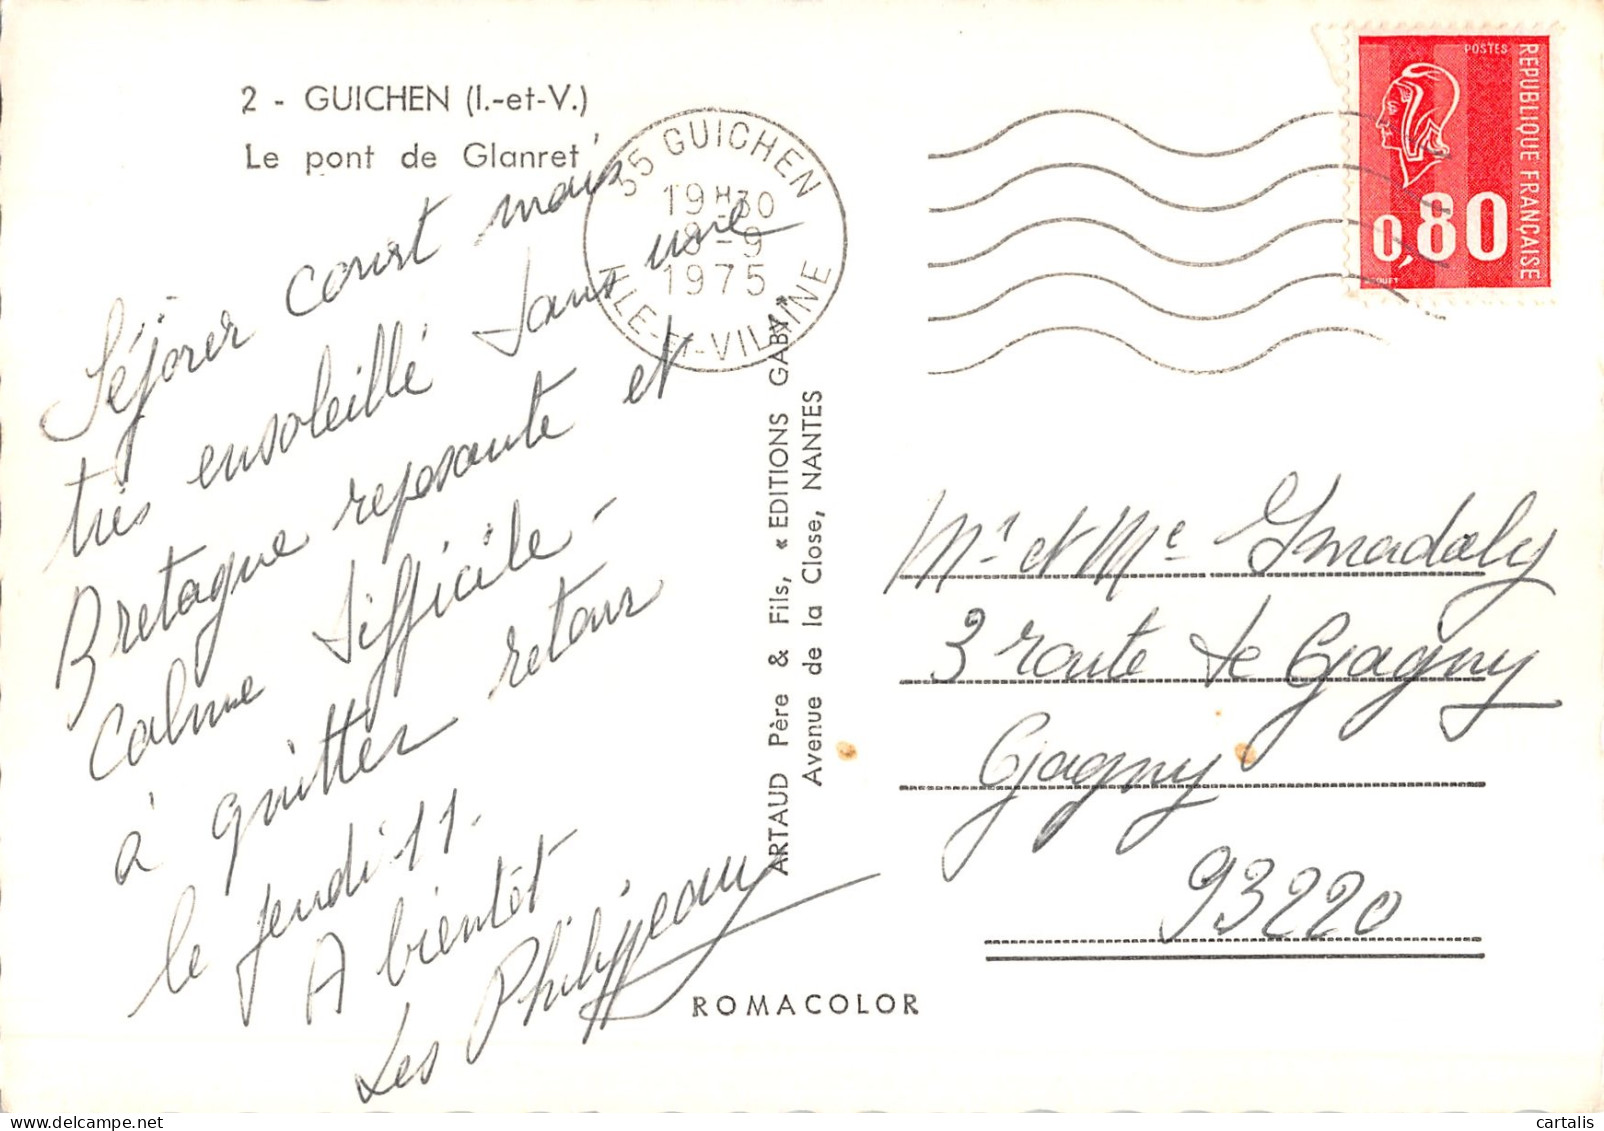 2 - GUICHEN (I.-et-V.)
Le pont de Glanret
35 GUICHEN
19 H30
8-9
1975
ILLE-ET-VILAINE
POSTES
REPUBLIQUE FRANÇAISE
0,80
Séjorer court mais
très ensoleillé dans une
Bretagne reposante et
calme difficile -
à quitter retour
le jeudi 11.
A bientôt
Les Philippeau
ARTAUD Père & Fils, « EDITIONS GABY »
Avenue de la Close, NANTES
Mr et Me Gmadaly
3 route de Gagny
Gagny
93220
ROMACOLOR
cartalis